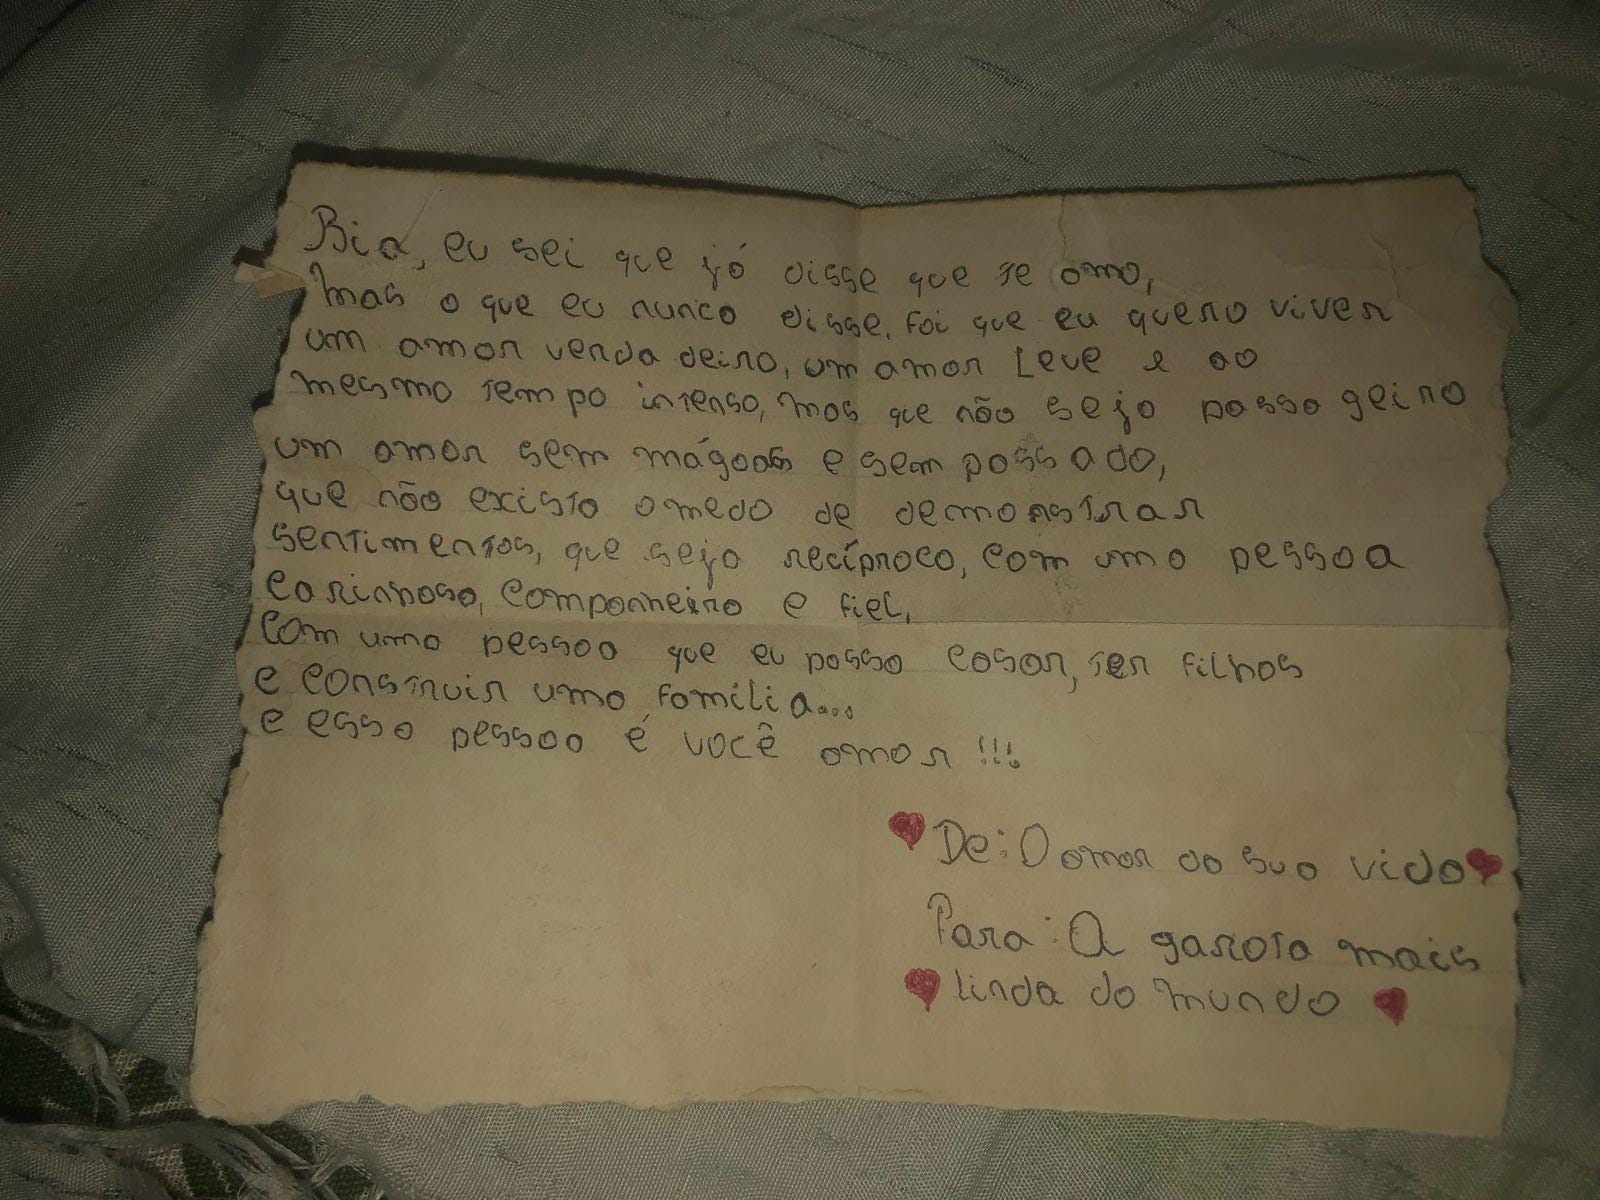 Bia, eu sei que já disse que te amo,
mas o que eu nunca disse, foi que eu quero viver
um amor verdadeiro, um amor leve e ao
mesmo tempo intenso, mas que não seja passageiro
um amor sem mágoas e sem passado,
que não exista o medo de demonstrar
sentimentos, que seja recíproco, com uma pessoa
carinhosa, companheiro e fiel,
com uma pessoa que eu possa casar, ter filhos
e construir uma família...
e essa pessoa é você amor !!!
De: O amor da sua vida
Para: A garota mais
linda do mundo